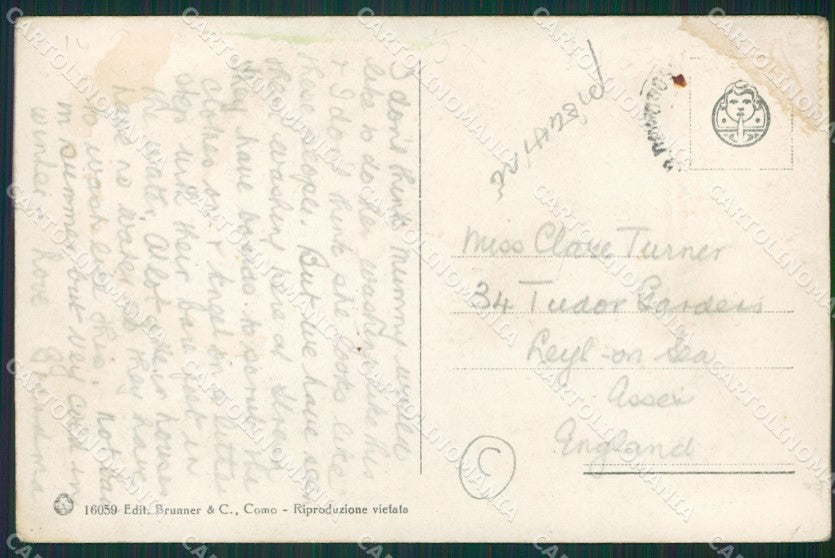 I don't think Mummy would
like to do her washing like this
& I don't think she looks like
these people. But we have seen
their washing here a stream
They have boards to scrub the
clothes on & kneel on a little
step with their bare feet in
the water. A lot of houses
have no water so they have
to wash like this. not bad
in summer but very cold in
winter. love
Miss Clare Turner
34 Tudor Gardens
Leyl-on Sea
Essex
England
C
16059 Edit. Brunner & C., Como - Riproduzione vietata
CARTOLINOMANIA